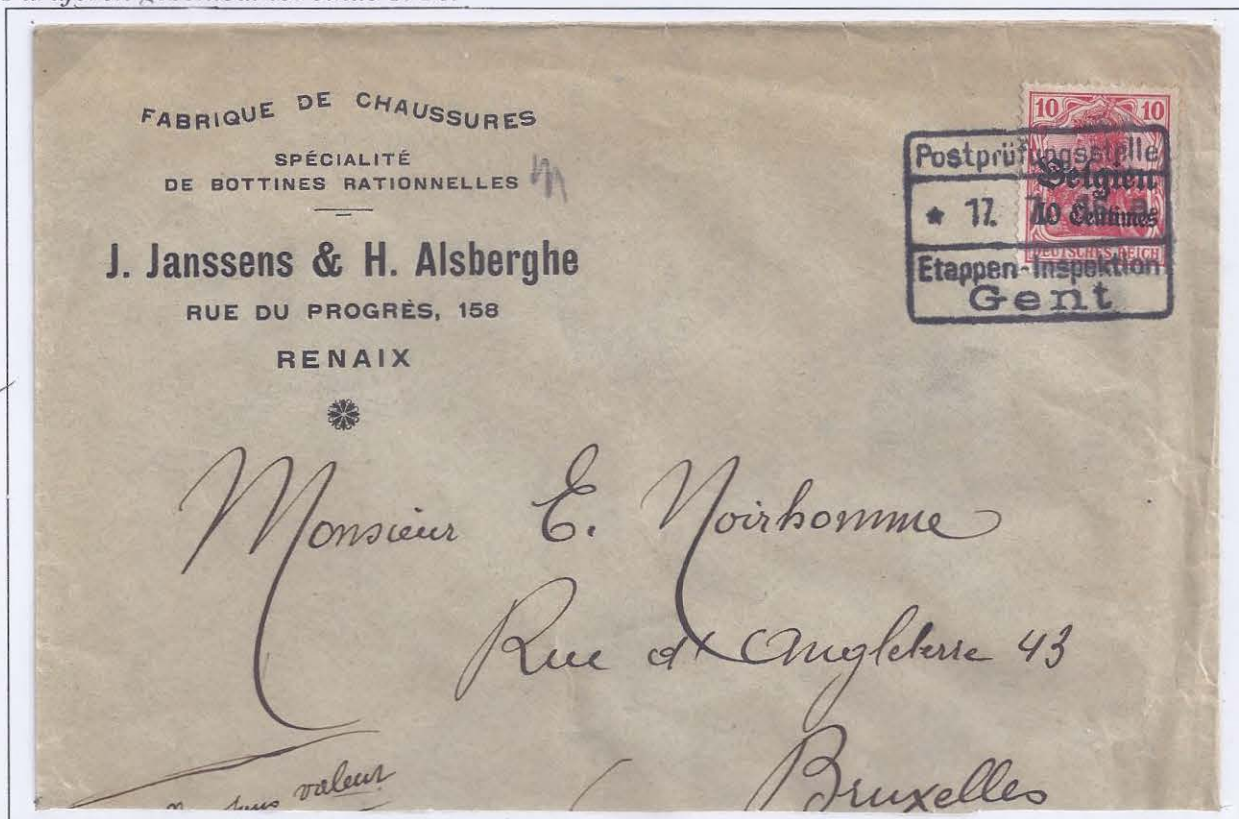 FABRIQUE DE CHAUSSURES
SPÉCIALITÉ
DE BOTTINES RATIONNELLES
J. Janssens & H. Alsberghe
RUE DU PROGRÈS, 158
RENAIX
10 10
Postprüfungsstelle
Belgien
* 17.
10 Centimes
DEUTSCHES REICH
Etappen-Inspektion
Gent
Monsieur E. Noirhomme
Rue d'Angleterre 43
Bruxelles
sans valeur